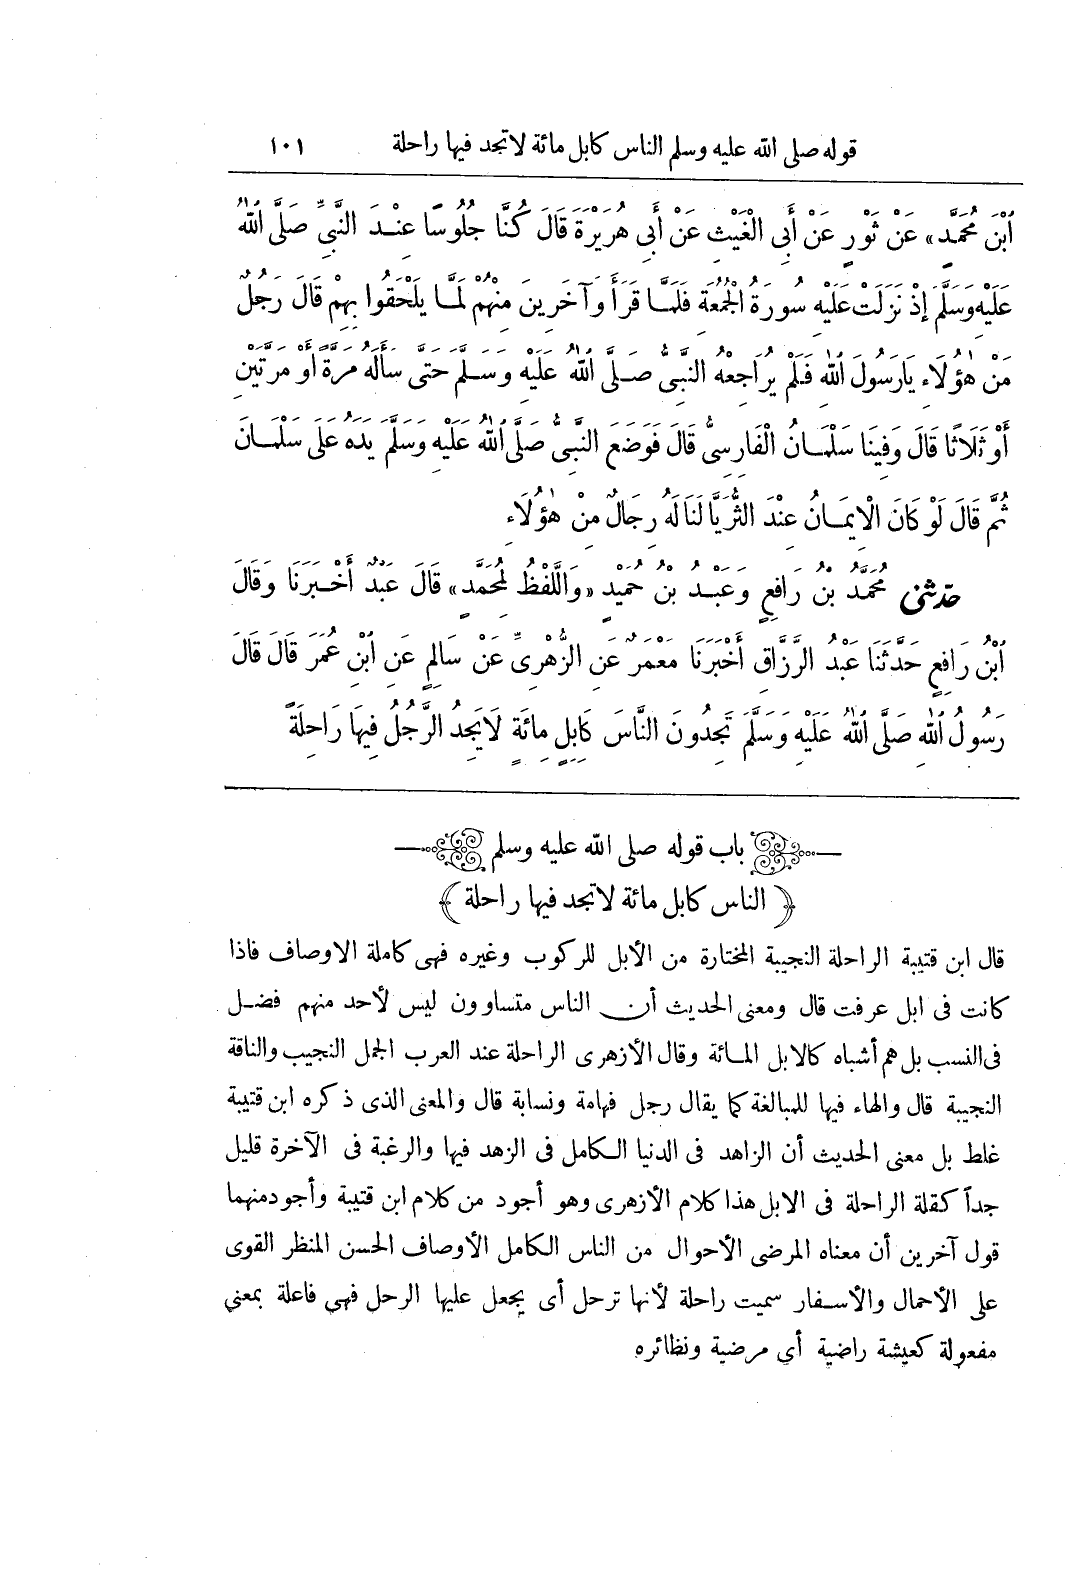 قوله صلى الله عليه وسلم الناس كابل مائة لاتجد فيها راحلة ١٠١
ٱبْنَ مُحَمَّدٍ» عَنْ ثَوْرٍ عَنْ أَبِى الْغَيْثِ عَنْ أَبِى هُرَيْرَةَ قَالَ كُنَّا جُلُوسًا عِنْدَ النَّبِىِّ صَلَّى ٱللهُ
عَلَيْهِ وَسَلَّمَ إِذْ نَزَلَتْ عَلَيْهِ سُورَةُ الْجُمُعَةِ فَلَمَّا قَرَأَ وَآخَرِينَ مِنْهُمْ لَمَّا يَلْحَقُوا بِهِمْ قَالَ رَجُلٌ
مَنْ هٰؤُلَاءِ يَارَسُولَ ٱللهِ فَلَمْ يُرَاجِعْهُ النَّبِىُّ صَلَّى ٱللهُ عَلَيْهِ وَسَلَّمَ حَتَّى سَأَلَهُ مَرَّةً أَوْ مَرَّتَيْنِ
أَوْ ثَلَاثًا قَالَ وَفِينَا سَلْمَانُ الْفَارِسِىُّ قَالَ فَوَضَعَ النَّبِىُّ صَلَّى ٱللهُ عَلَيْهِ وَسَلَّمَ يَدَهُ عَلَى سَلْمَانَ
ثُمَّ قَالَ لَوْ كَانَ الْإِيمَانُ عِنْدَ الثُّرَيَّا لَنَالَهُ رِجَالٌ مِنْ هٰؤُلَاءِ
حَدَّثَنِى مُحَمَّدُ بْنُ رَافِعٍ وَعَبْدُ بْنُ حُمَيْدٍ «وَاللَّفْظُ لِمُحَمَّدٍ» قَالَ عَبْدٌ أَخْبَرَنَا وَقَالَ
ٱبْنُ رَافِعٍ حَدَّثَنَا عَبْدُ الرَّزَّاقِ أَخْبَرَنَا مَعْمَرٌ عَنِ الزُّهْرِىِّ عَنْ سَالِمٍ عَنِ ٱبْنِ عُمَرَ قَالَ قَالَ
رَسُولُ ٱللهِ صَلَّى ٱللهُ عَلَيْهِ وَسَلَّمَ تَجِدُونَ النَّاسَ كَإِبِلٍ مِائَةٍ لَا يَجِدُ الرَّجُلُ فِيهَا رَاحِلَةً
باب قوله صلى الله عليه وسلم
﴿ الناس كابل مائة لاتجد فيها راحلة ﴾
قال ابن قتيبة الراحلة النجيبة المختارة من الأبل للركوب وغيره فهى كاملة الاوصاف فاذا
كانت فى ابل عرفت قال ومعنى الحديث أن الناس متساوون ليس لأحد منهم فضل
فى النسب بل هم أشباه كالابل المائة وقال الأزهرى الراحلة عند العرب الجمل النجيب والناقة
النجيبة قال والهاء فيها للمبالغة كما يقال رجل فهامة ونسابة قال والمعنى الذى ذكره ابن قتيبة
غلط بل معنى الحديث أن الزاهد فى الدنيا الكامل فى الزهد فيها والرغبة فى الآخرة قليل
جداً كقلة الراحلة فى الابل هذا كلام الأزهرى وهو أجود من كلام ابن قتيبة وأجود منهما
قول آخرين أن معناه المرضى الأحوال من الناس الكامل الأوصاف الحسن المنظر القوى
على الأحمال والأسفار سميت راحلة لأنها ترحل أى يجعل عليها الرحل فهي فاعلة بمعني
مفعولة كعيشة راضية أي مرضية ونظائره